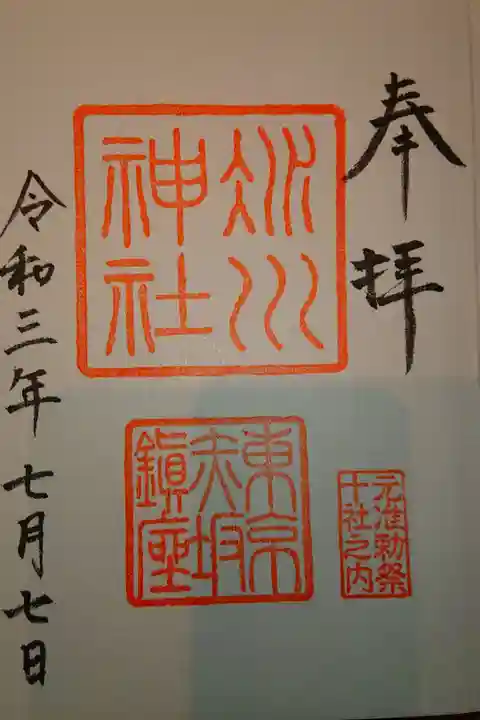 奉拝
氷川
神社
東京
赤坂
鎮座
元准勅祭
十社之内
令和三年七月七日